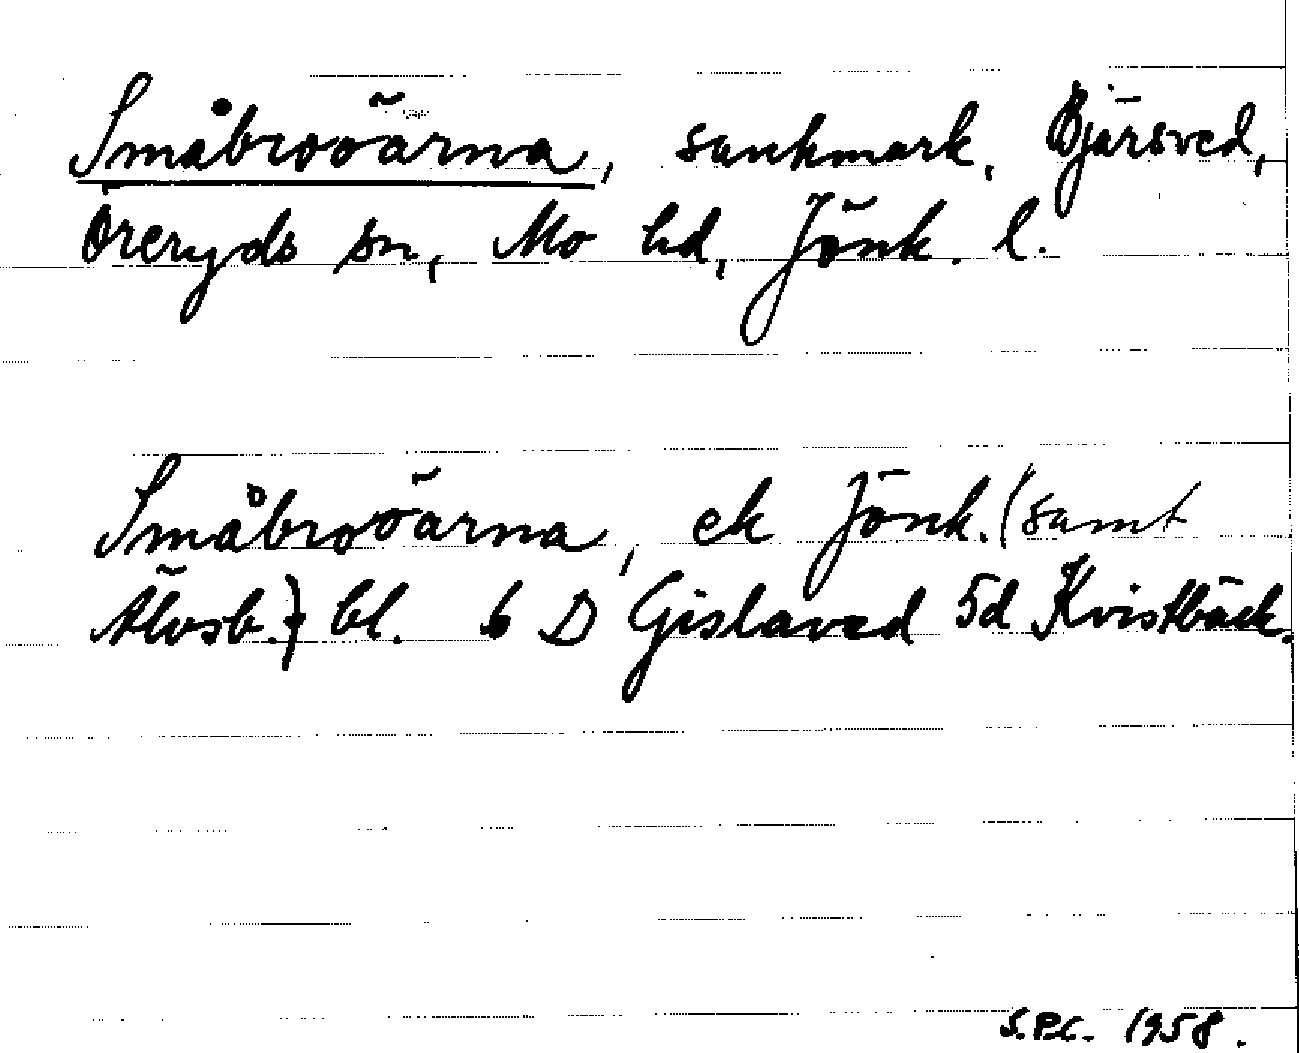 Småbroöarna, sankmark, Bjärsved,
Öreryds sn, Mo hd, Jönk. l.
Småbroöarna, ek Jönk. (samt
Älvsb.) bl. 6 D Gislaved 5d Kvistbäck.
S.P.C. 1958.